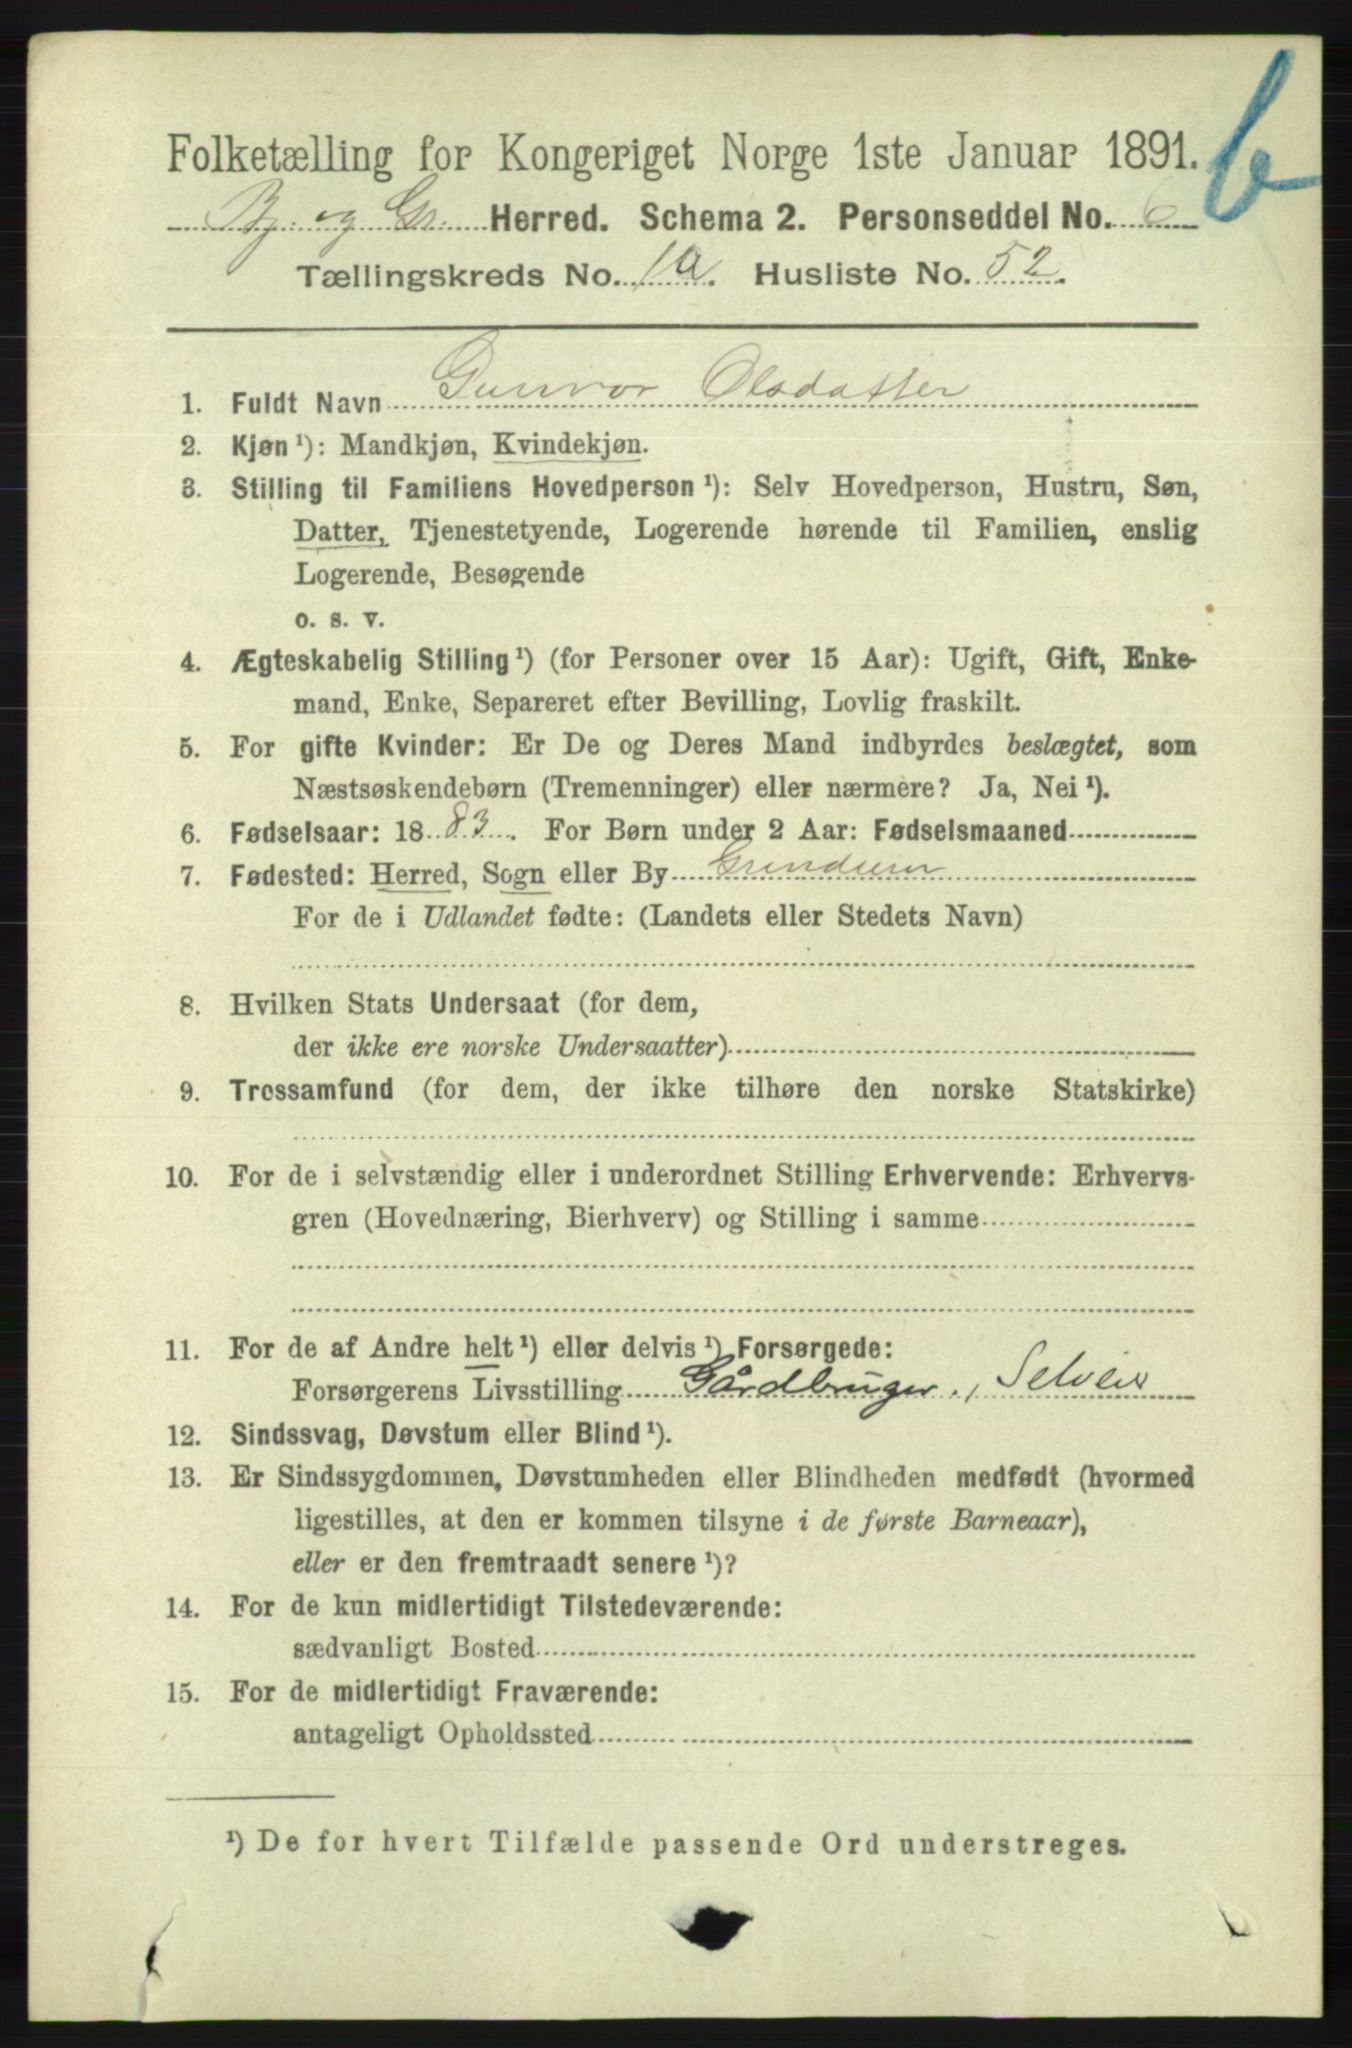 b
Folketælling for Kongeriget Norge 1ste Januar 1891.
Bj. og Gr. Herred. Schema 2. Personseddel No. 6
Tællingskreds No. 1a. Husliste No. 52.
1. Fuldt Navn Gunvor Olsdatter
2. Kjøn ¹): Mandkjøn, Kvindekjøn.
3. Stilling til Familiens Hovedperson ¹): Selv Hovedperson, Hustru, Søn,
Datter, Tjenestetyende, Logerende hørende til Familien, enslig
Logerende, Besøgende
o. s. v.
4. Ægteskabelig Stilling ¹) (for Personer over 15 Aar): Ugift, Gift, Enke-
mand, Enke, Separeret efter Bevilling, Lovlig fraskilt.
5. For gifte Kvinder: Er De og Deres Mand indbyrdes beslægtet, som
Næstsøskendebørn (Tremenninger) eller nærmere? Ja, Nei ¹).
6. Fødselsaar: 1883. For Børn under 2 Aar: Fødselsmaaned
7. Fødested: Herred, Sogn eller By Grindum
For de i Udlandet fødte: (Landets eller Stedets Navn)
8. Hvilken Stats Undersaat (for dem,
der ikke ere norske Undersaatter)
9. Trossamfund (for dem, der ikke tilhøre den norske Statskirke)
10. For de i selvstændig eller i underordnet Stilling Erhvervende: Erhvervs-
gren (Hovednæring, Bierhverv) og Stilling i samme
11. For de af Andre helt ¹) eller delvis ¹) Forsørgede:
Forsørgerens Livsstilling Gårdbruger., Selveier
12. Sindssvag, Døvstum eller Blind ¹).
13. Er Sindssygdommen, Døvstumheden eller Blindheden medfødt (hvormed
ligestilles, at den er kommen tilsyne i de første Barneaar),
eller er den fremtraadt senere ¹)?
14. For de kun midlertidigt Tilstedeværende:
sædvanligt Bosted
15. For de midlertidigt Fraværende:
antageligt Opholdssted
¹) De for hvert Tilfælde passende Ord understreges.